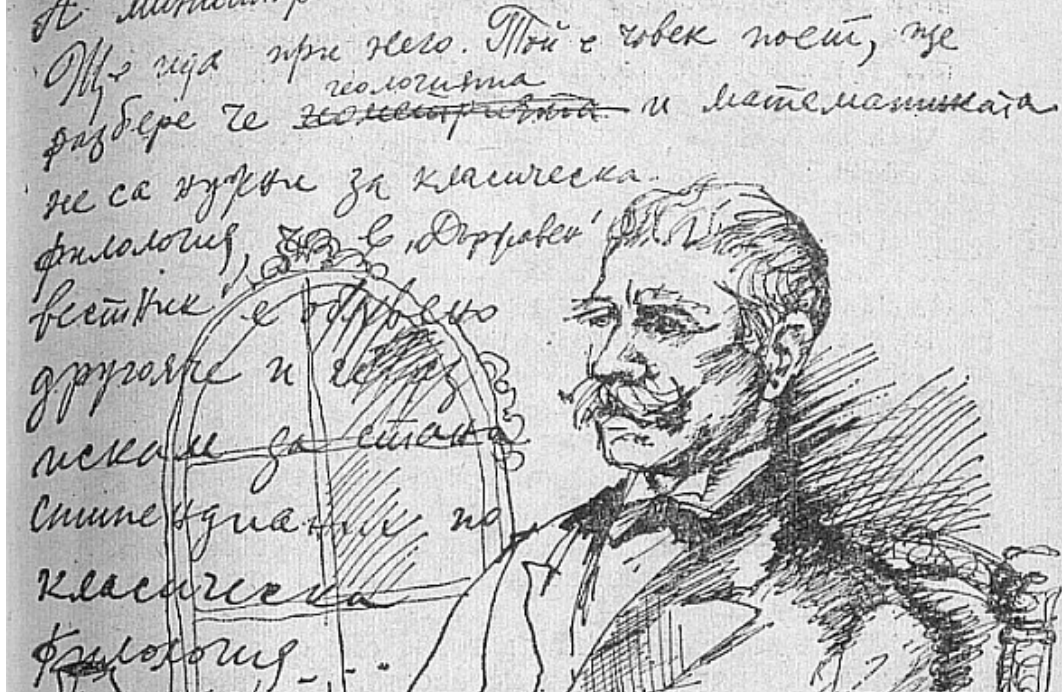 А министър
Ще ида при него. Той е човек поет, ще
геологията
разбере че геометрията и математиката
не са нужни за класическа
филология, че в „Държавен
вестник“ е обявено
другояче и че аз
искам да стана
стипендиант по
класическа
филология